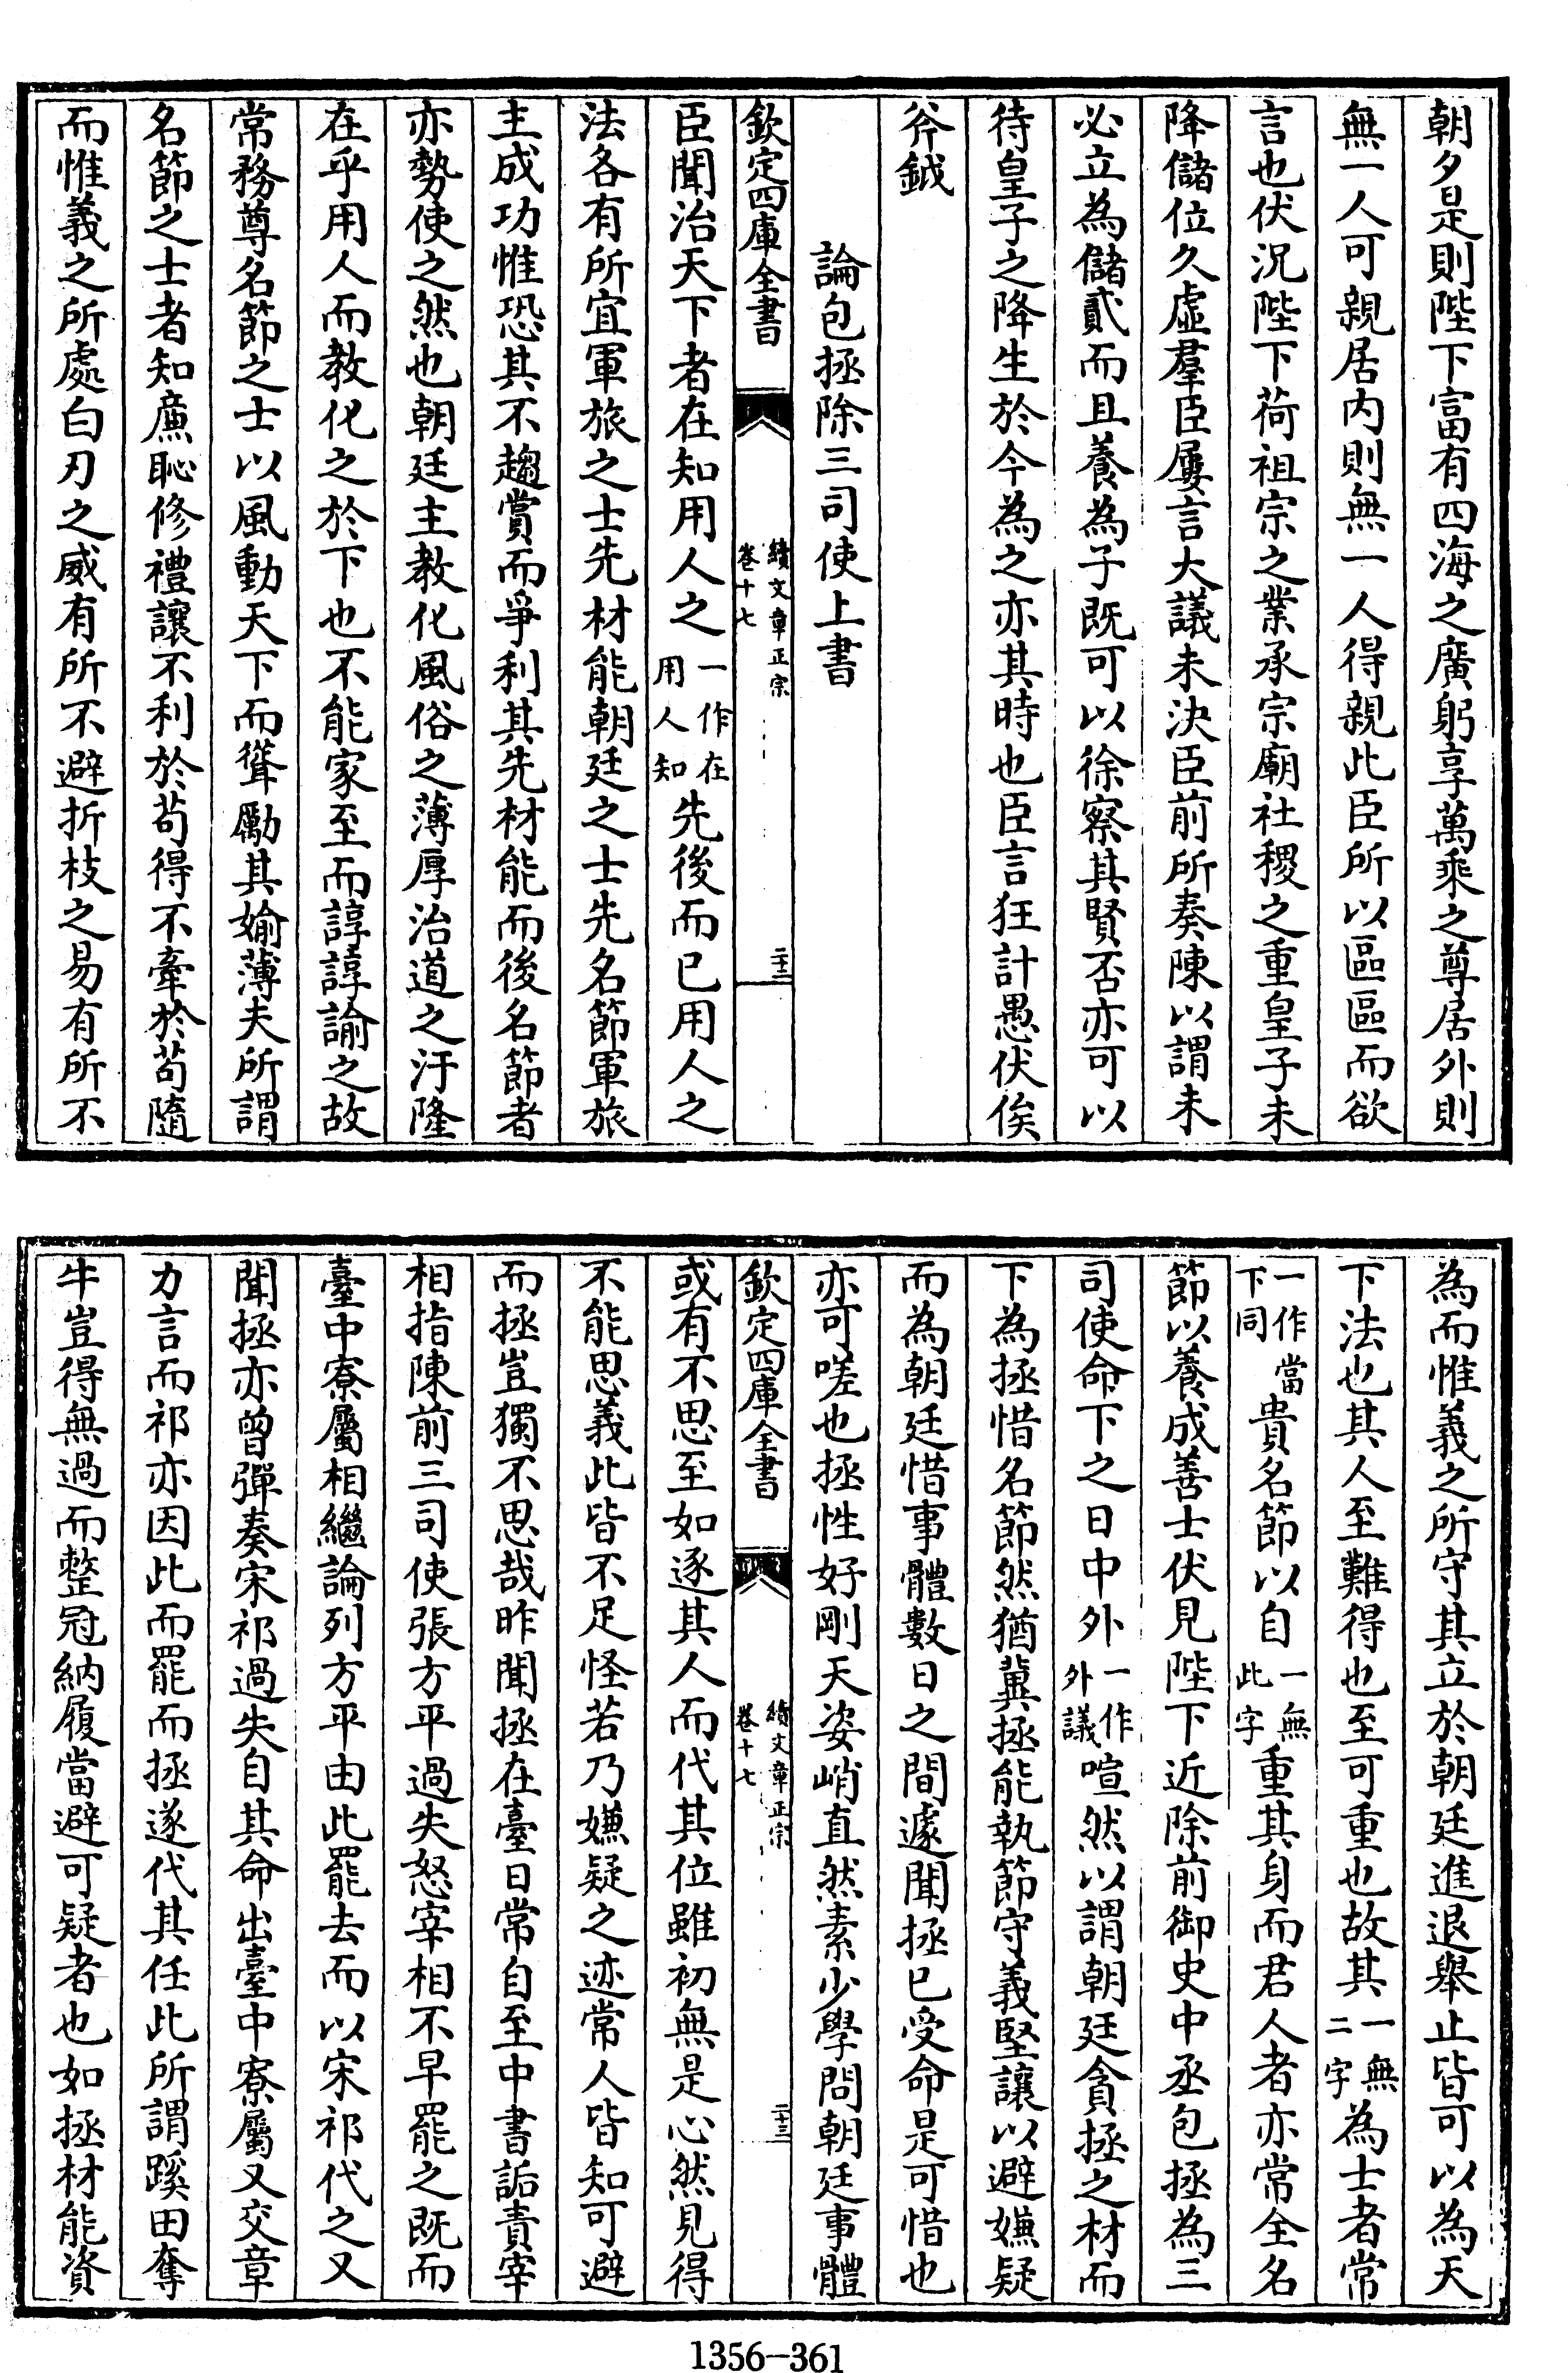 朝夕是則陛下富有四海之廣躬享萬乘之尊居外則
無一人可親居内則無一人得親此臣所以區區而欲
言也伏況陛下荷祖宗之業承宗廟社稷之重皇子未
降儲位久虛羣臣屢言大議未決臣前所奏陳以謂未
必立為儲貳而且養為子既可以徐察其賢否亦可以
待皇子之降生於今為之亦其時也臣言狂計愚伏俟
斧鉞
論包拯除三司使上書
欽定四庫全書
續文章正宗
卷十七
二十二
臣聞治天下者在知用人之一作在用人知先後而已用人之
法各有所宜軍旅之士先材能朝廷之士先名節軍旅
主成功惟恐其不趨賞而爭利其先材能而後名節者
亦勢使之然也朝廷主教化風俗之薄厚治道之汙隆
在乎用人而教化之於下也不能家至而諄諄諭之故
常務尊名節之士以風動天下而聳勵其媮薄夫所謂
名節之士者知亷恥修禮讓不利於苟得不牽於苟隨
而惟義之所處白刃之威有所不避折枝之易有所不
為而惟義之所守其立於朝廷進退舉止皆可以為天
下法也其人至難得也至可重也故其一無二字為士者常
一作當下同貴名節以自一無此字重其身而君人者亦常全名
節以養成善士伏見陛下近除前御史中丞包拯為三
司使命下之日中外一作外議喧然以謂朝廷貪拯之材而
下為拯惜名節然猶冀拯能執節守義堅讓以避嫌疑
而為朝廷惜事體數日之間遽聞拯已受命是可惜也
亦可嗟也拯性好剛天姿峭直然素少學問朝廷事體
欽定四庫全書
續文章正宗
卷十七
二十三
或有不思至如逐其人而代其位雖初無是心然見得
不能思義此皆不足怪若乃嫌疑之迹常人皆知可避
而拯豈獨不思哉昨聞拯在臺日常自至中書詬責宰
相指陳前三司使張方平過失怒宰相不早罷之既而
臺中寮屬相繼論列方平由此罷去而以宋祁代之又
聞拯亦曾彈奏宋祁過失自其命出臺中寮屬又交章
力言而祁亦因此而罷而拯遂代其任此所謂蹊田奪
牛豈得無過而整冠納履當避可疑者也如拯材能資
1356-361